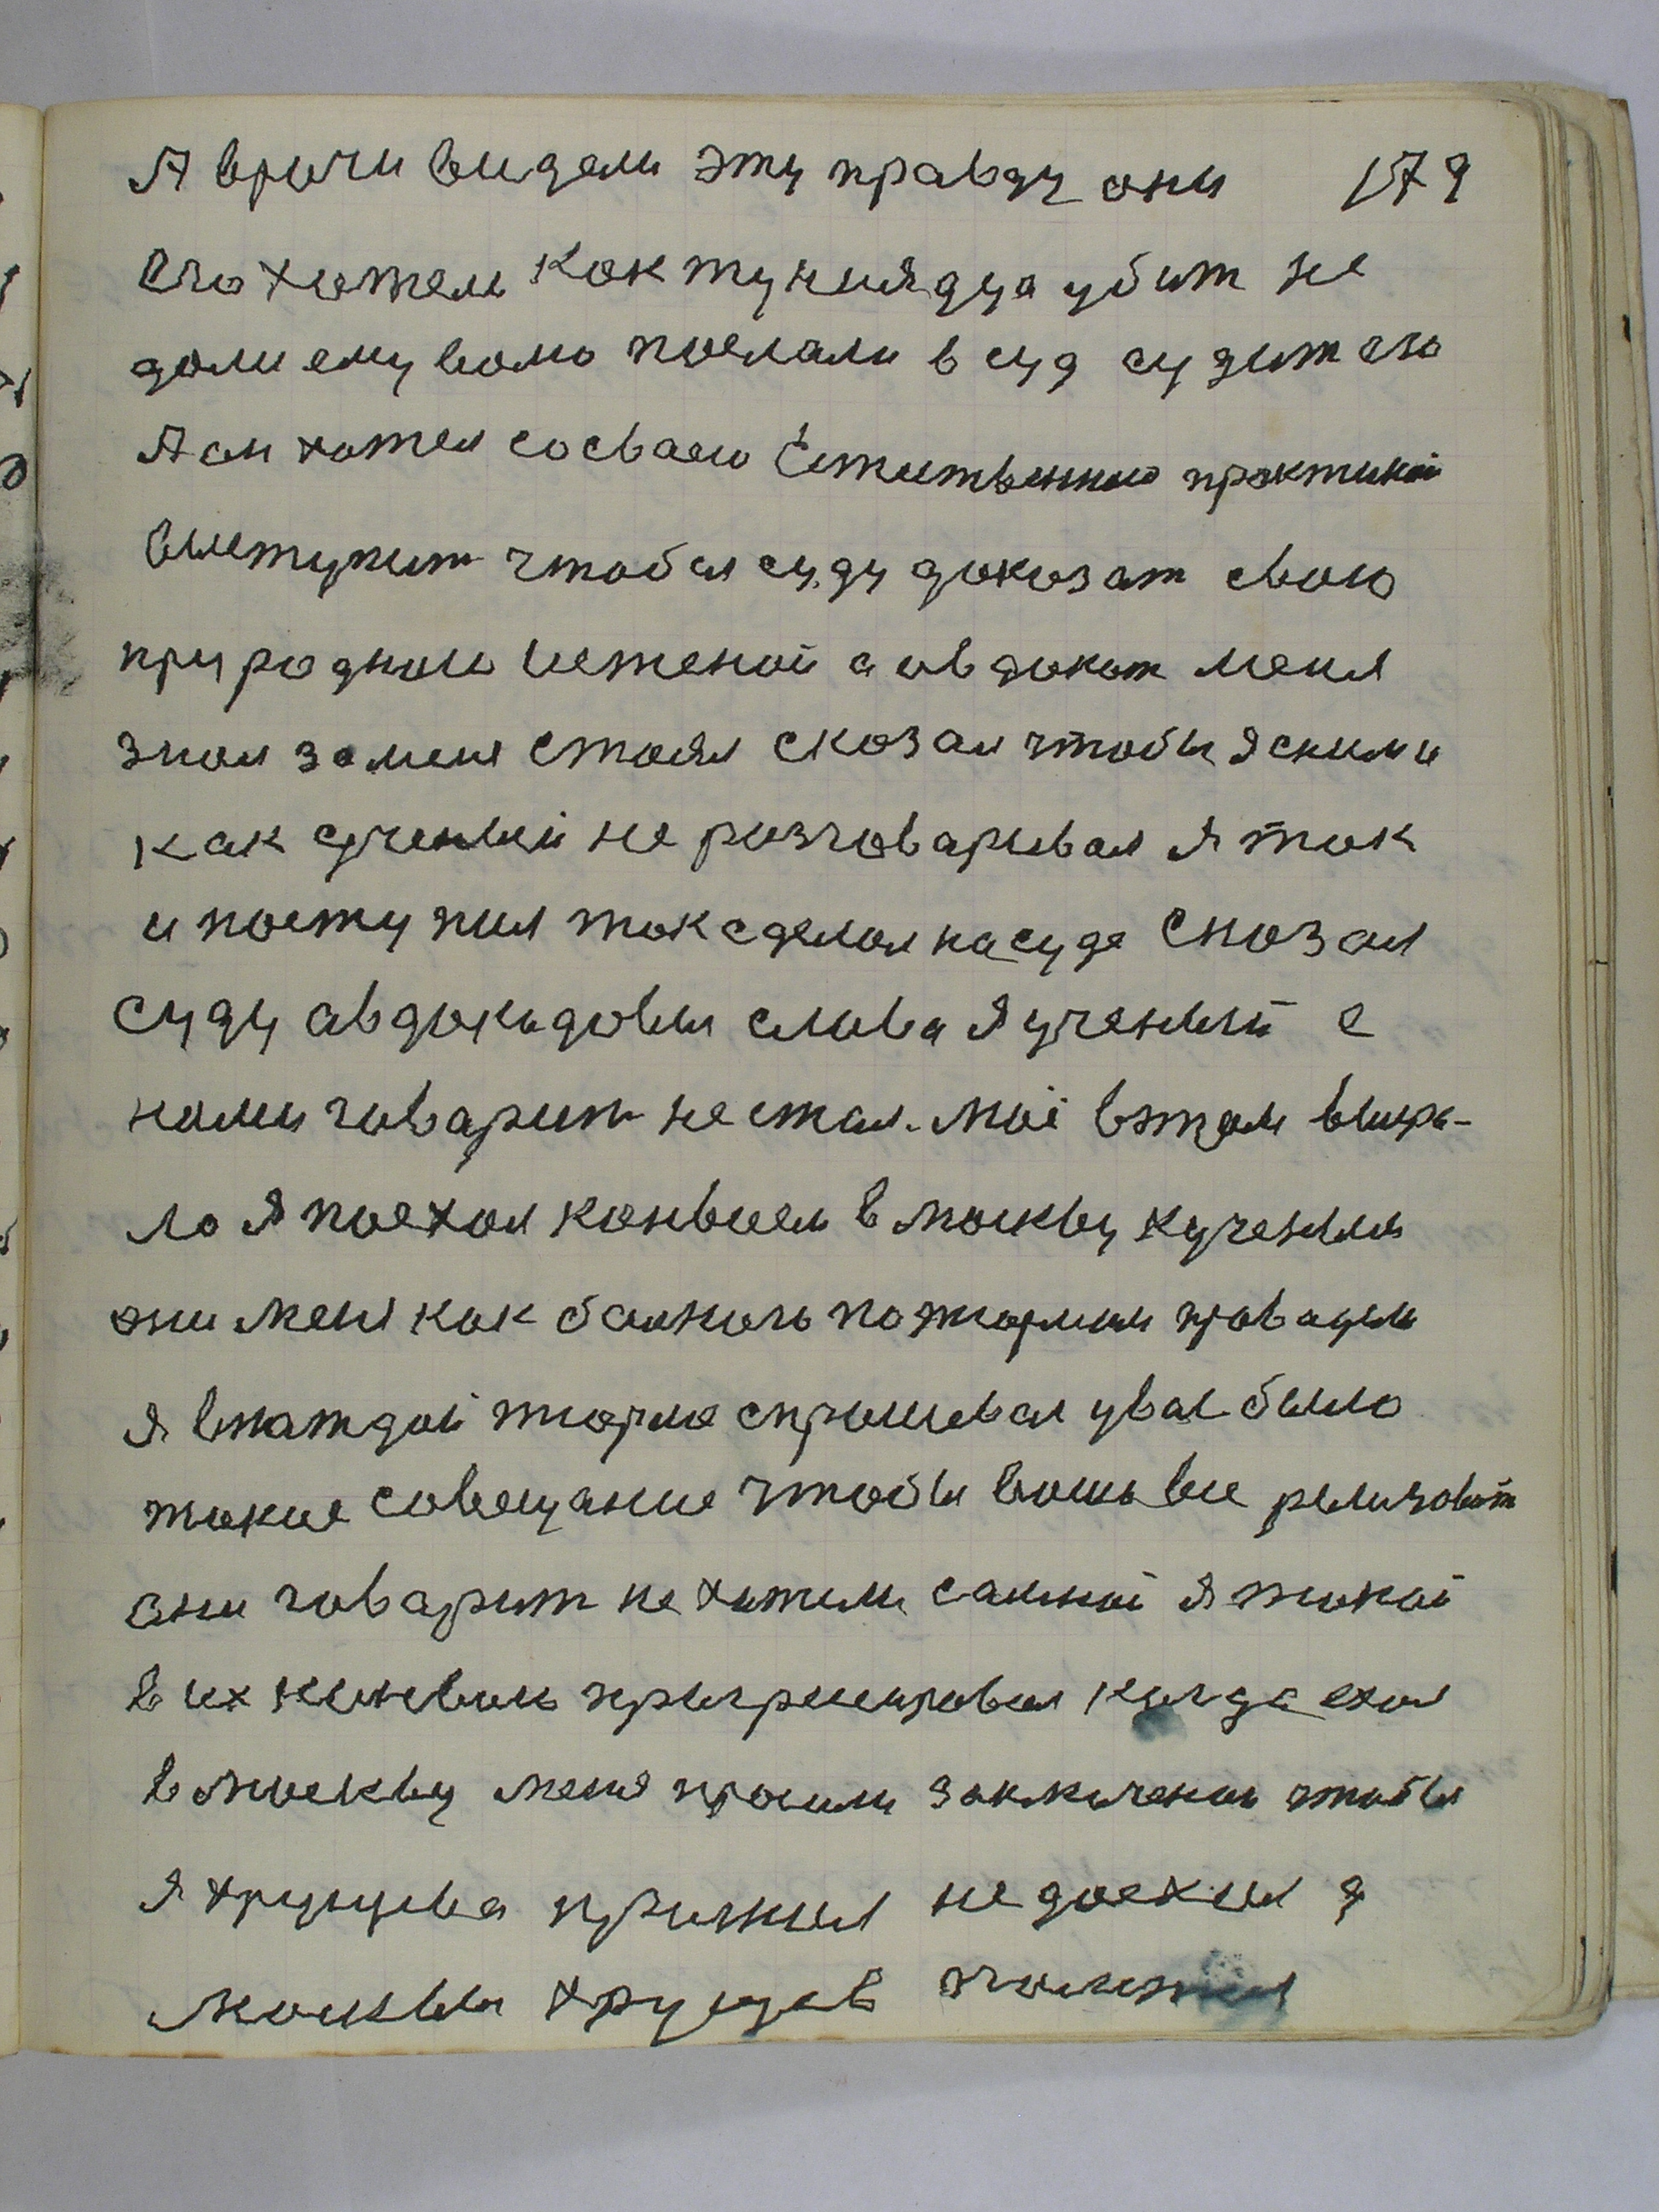 А врачи видели эту правду они 179
его хотели как туниядца убит не
дали ему волю послали в суд судит его
А он хотел сосваею Естественною практикой
выступит чтобы суду доказат свою
природною истеной а овдокат меня
знал за меня стоял сказал чтобы я сними
как ученый не разговаривал я так
и поступил так сделал на суде сказал
суду авдокадовы слова я ученый с
нами говарит не стал. Моё вэтом выгра-
ло я поехал конвоем в москву кученым
они меня как бального по тюрмам проводили
я вкаждой тюрме спрошевал увас было
такие совещание чтобы вошь вые
они говарит не хотели самной я такой
в их конвоы когда ехал
в москву меня просили заключеные чтобы
я хрущева прижал не доехал я
москвы хрущев